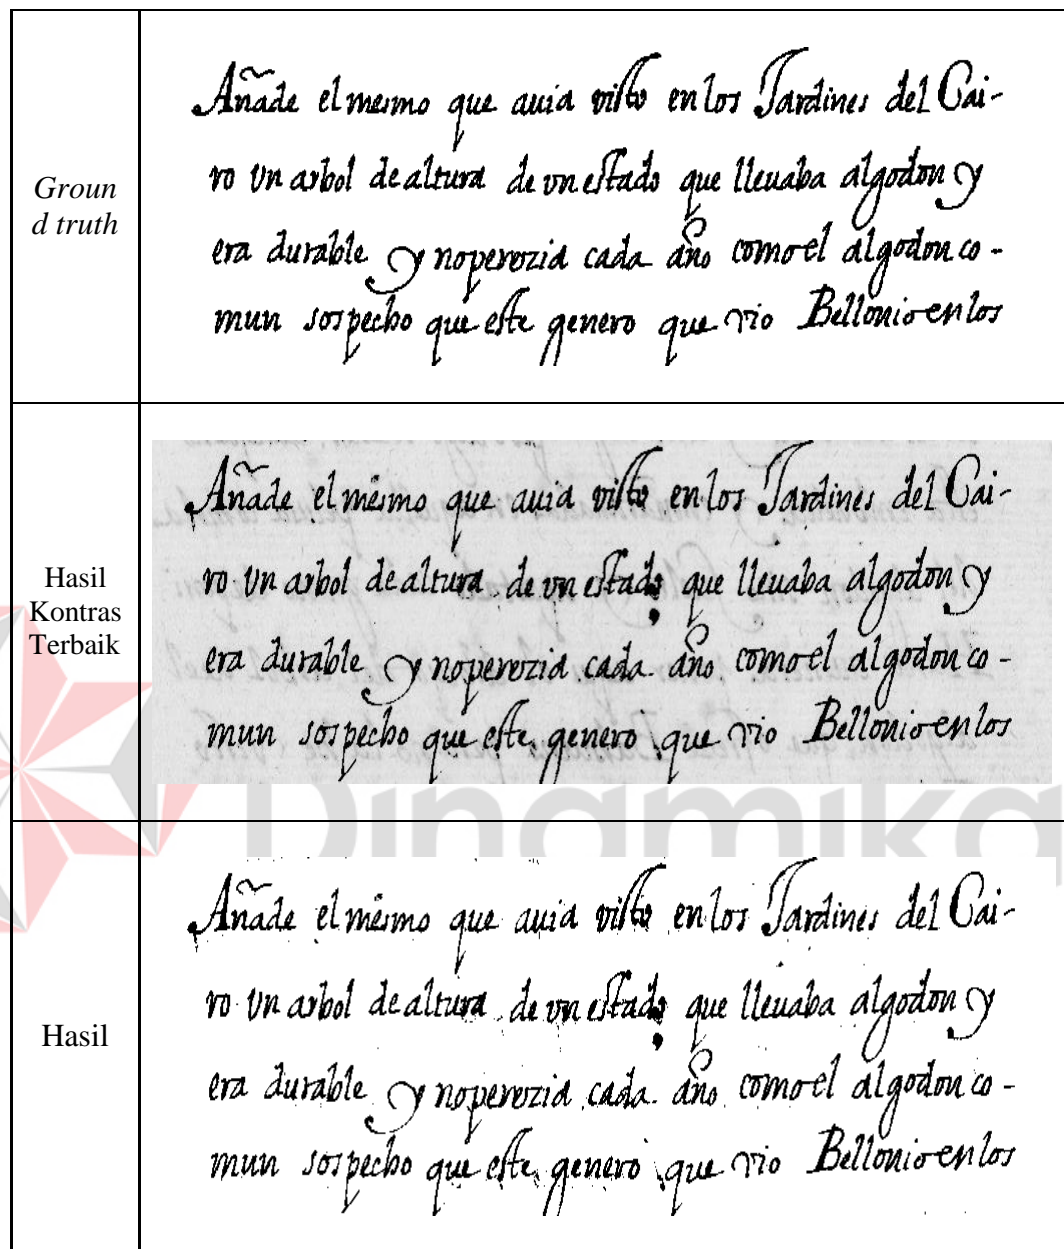 Groun
d truth
Añade el mesmo que auia visto en los Jardines del Cai-
ro vn arbol de altura de vn estado que lleuaba algodon y
era durable y no perezia cada año como el algodon co-
mun sospecho que este genero que vio Bellonio en los
Hasil
Kontras
Terbaik
Añade el mesmo que auia visto en los Jardines del Cai-
ro vn arbol de altura de vn estado que lleuaba algodon y
era durable y no perezia cada año como el algodon co-
mun sospecho que este genero que vio Bellonio en los
Dinamika
Hasil
Añade el mesmo que auia visto en los Jardines del Cai-
ro vn arbol de altura de vn estado que lleuaba algodon y
era durable y no perezia cada año como el algodon co-
mun sospecho que este genero que vio Bellonio en los